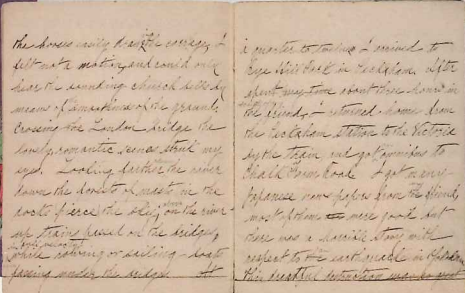 the horses easily drawn the carriage, I
felt not a motion, and could only
hear the sounding church bells by
means of smoothness of the ground.
Crossing the London bridge the
lovely romantic scenes struck my
eyes. Looking farther the river
down the forest of masts in the
docks pierce the sky, on the river
trains passed on the bridges,
while rowing or sailing boats
passing under the bridge. At
a quarter to twelve I arrived to
Rye Hill Park in Peckham. After
spent my time about three hours in
the friend, I returned home from
the Peckham station to the Victoria
by the train and got omnibus to
Chalk Farm Road. I got many
Japanese news papers from the friend,
most of them were good but
there was a horrible story with
respect to the earthquake in
this dreadful destruction